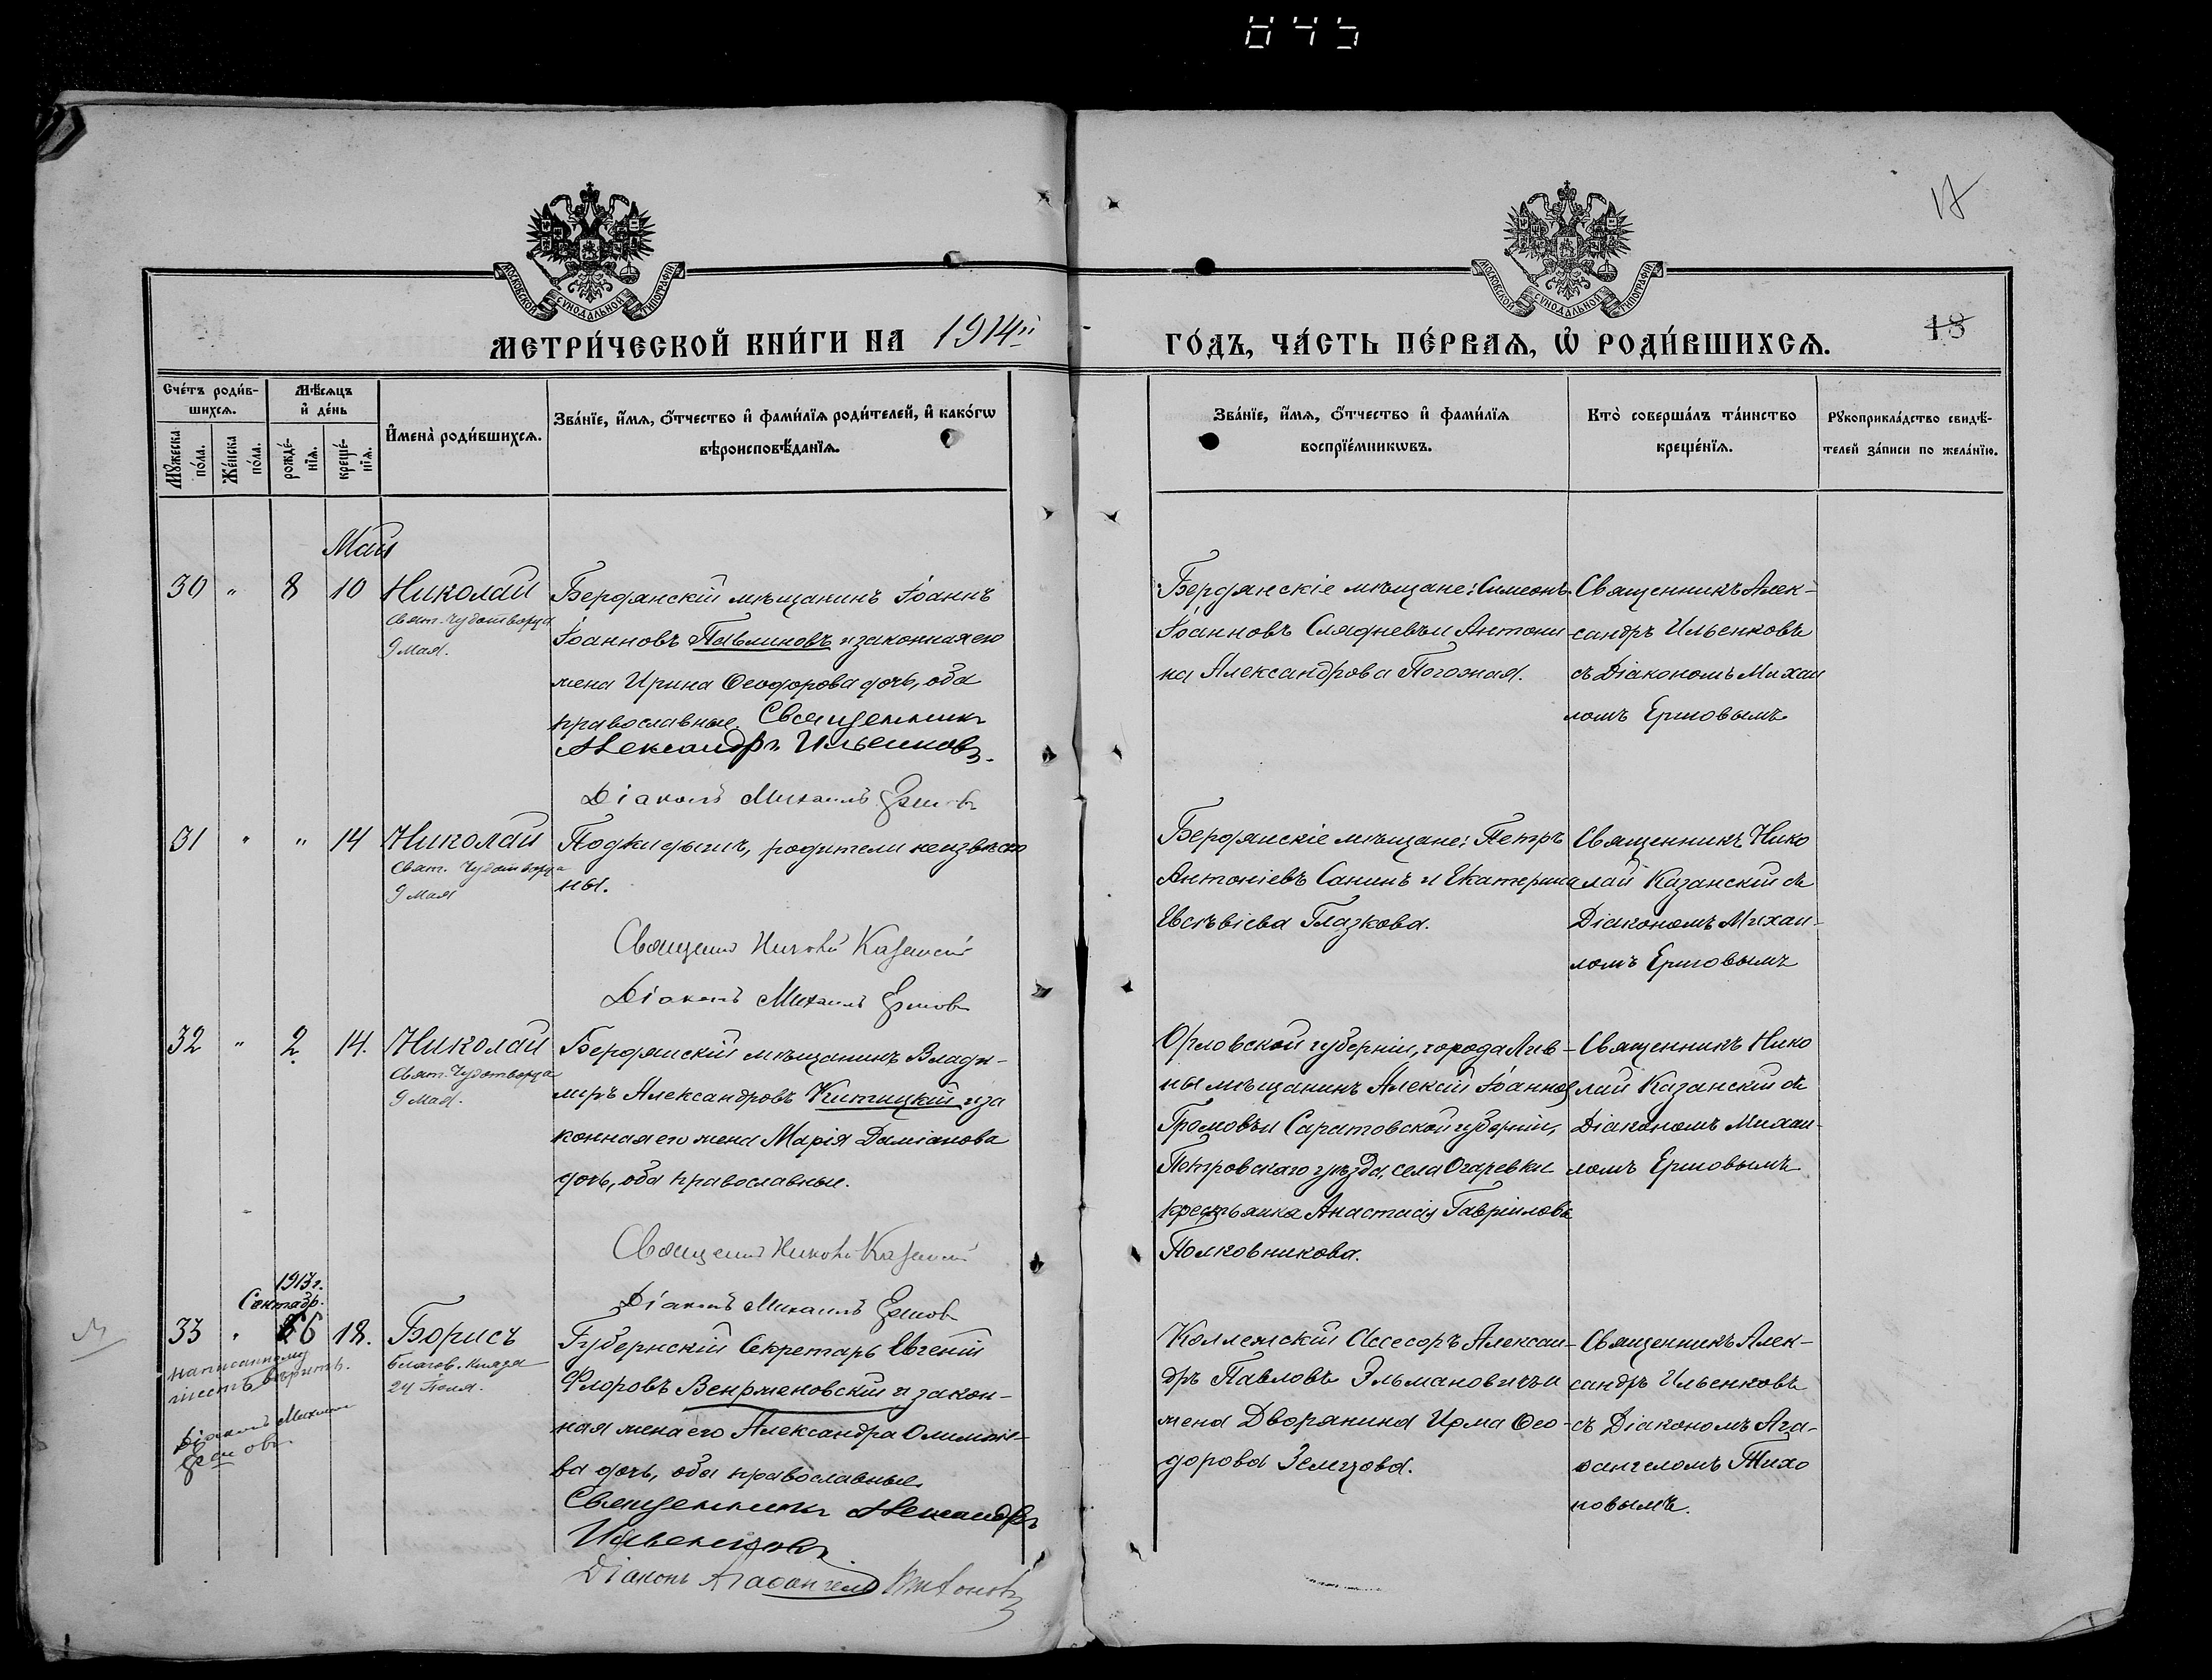 845
17
МОСКОВСКОЙ СУНОДАЛЬНОЙ ТИПОГРАФІИ
МОСКОВСКОЙ СУНОДАЛЬНОЙ ТИПОГРАФІИ
МЕТРИ́ЧЕСКОЙ КНИ́ГИ НА 1914й
ГО́ДЪ, ЧА́СТЬ ПЕ́РВАѦ, Ѡ҆ РОДИ́ВШИХСѦ.
18
Сче́тъ роди́в-
шихсѧ.
Мꙋ́жеска по́ла.
Же́нска по́ла.
Мѣ́сѧцъ
и҆ де́нь
рожде́-
нїѧ.
креще́-
нїѧ.
И҆мена̀ роди́вшихсѧ.
Зва́нїе, и҆́мѧ, ѻ҆́тчество и҆ фами́лїѧ роди́телей, и҆ како́гѡ
вѣроисповѣ́данїѧ.
Зва́нїе, и҆́мѧ, ѻ҆́тчество и҆ фами́лїѧ
воспрїе́мникѡвъ.
Кто̀ соверша́лъ та́инство
креще́нїѧ.
Рꙋкоприкла́дство свидѣ́-
телей за́писи по жела́нїю.
Май
30 " 8 10 Николай
Свят. Чудотворца
9 Мая.
Бердянскій мѣщанинъ Іоаннъ
Іоанновъ Павлиновъ и законная его
жена Ирина Ѳеодорова дочь, оба
православные. Священникъ
Александръ Ильенковъ.
Діаконъ Михаилъ Ершовъ
Бердянскіе мѣщане: Симеонъ
Іоанновъ Слядневъ и Антони
на Александрова Погожая.
Священникъ Алек-
сандръ Ильенковъ
съ Діакономъ Михаи
ломъ Ершовымъ
31 " " 14 Николай
Свят. Чудотворца
9 Мая
Подкидышъ, родители неизвѣст
ны.
Священникъ Николай Казанскій
Діаконъ Михаилъ Ершовъ
Бердянскіе мѣщане: Петръ
Антоніевъ Санинъ и Екатерина
Евсѣвіева Глазкова.
Священникъ Нико
лай Казанскій съ
Діакономъ Михаи-
ломъ Ершовымъ
32 " 2 14. Николай
Свят. Чудотворца
9 Мая.
Бердянскій мѣщанинъ Влади-
міръ Александровъ Китицкій и за
конная его жена Марія Даміанова
дочь, оба православные.
Священникъ Николай Казанскій
Діаконъ Михаилъ Ершовъ
Орловской губерніи, города Лив-
ны мѣщанинъ Алексій Іоанновъ
Громовъ и Саратовской губерніи,
Петровскаго уѣзда, села Огаревки
крестьянка Анастасія Гавріилова
Полковникова.
Священникъ Нико
лай Казанскій съ
Діакономъ Михаи-
ломъ Ершовымъ
1913 г.
Сентябр.
33 " 6 18. Борисъ
Благов. Князя
24 Іюля.
написанному
шесть вѣрить.
Діаконъ Михаилъ
Ершовъ
Губернскій Секретарь Евгеній
Флоровъ Венржановскій и закон-
ная жена его Александра Олимпіе-
ва дочь, оба православные.
Священникъ Александръ
Ильенковъ
Діаконъ Агаѳангелъ Тихоновъ
Коллежскій Ассесоръ Алексан-
дръ Павловъ Эльмановичъ и
жена Дворянина Ирма Ѳео-
дорова Земцова.
Священникъ Алек-
сандръ Ильенковъ
съ Діакономъ Ага-
ѳангеломъ Тихо
новымъ.